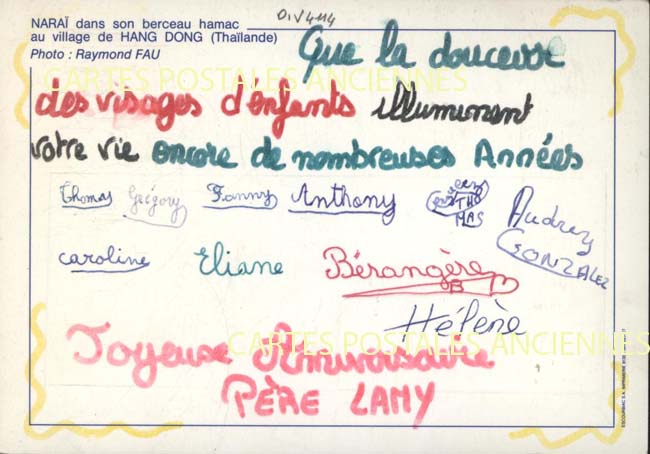 NARAÏ dans son berceau hamac
au village de HANG DONG (Thaïlande)
Photo : Raymond FAU
Que la douceur
CARTES POSTALES ANCIENNES
des visages d'enfants illuminent
votre vie encore de nombreuses Années
Thomas Grégory Fanny Anthony THO MAS Audrey GONZALEZ
caroline Eliane Bérangère
Hélène
CARTES POSTALES ANCIENNES
Joyeuse Anniversaire
PÈRE LAMY